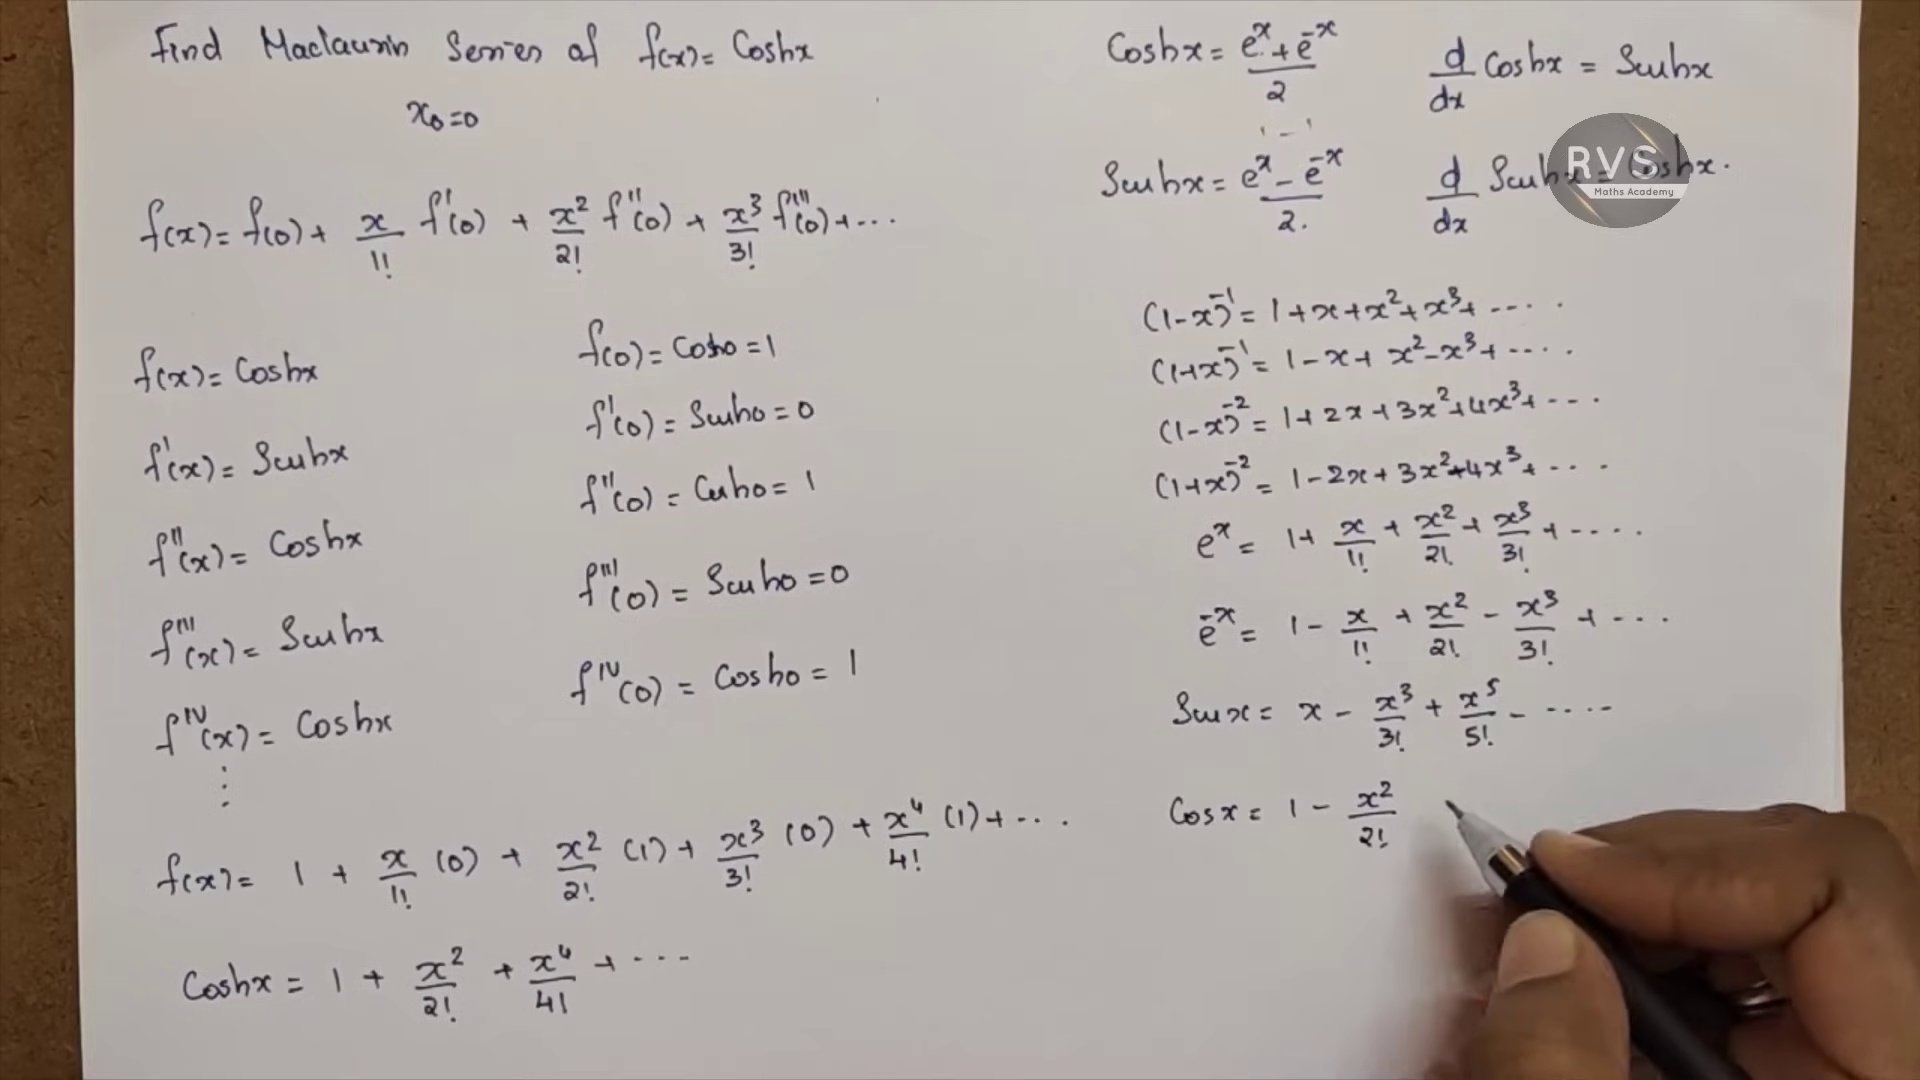 Find Maclaurin Series of f(x) = Coshx
x₀=0
f(x) = f(0) + x/1! f'(0) + x²/2! f''(0) + x³/3! f'''(0) + ...
f(x) = Coshx
f'(x) = Sinhx
f''(x) = Coshx
f'''(x) = Sinhx
f^IV(x) = Coshx
⋮
f(0) = Cosh0 = 1
f'(0) = Sinh0 = 0
f''(0) = Cosh0 = 1
f'''(0) = Sinh0 = 0
f^IV(0) = Cosh0 = 1
f(x) = 1 + x/1! (0) + x²/2! (1) + x³/3! (0) + x⁴/4! (1) + ...
Coshx = 1 + x²/2! + x⁴/4! + ...
Coshx = (e^x + e^-x)/2
d/dx Coshx = Sinhx
1 - 1
Sinhx = (e^x - e^-x)/2.
d/dx Sinhx = Coshx.
RVS
Maths Academy
(1-x)^-1 = 1 + x + x² + x³ + ....
(1+x)^-1 = 1 - x + x² - x³ + ....
(1-x)^-2 = 1 + 2x + 3x² + 4x³ + ...
(1+x)^-2 = 1 - 2x + 3x² - 4x³ + ...
e^x = 1 + x/1! + x²/2! + x³/3! + ....
e^-x = 1 - x/1! + x²/2! - x³/3! + ...
Sinx = x - x³/3! + x⁵/5! - ....
Cosx = 1 - x²/2!